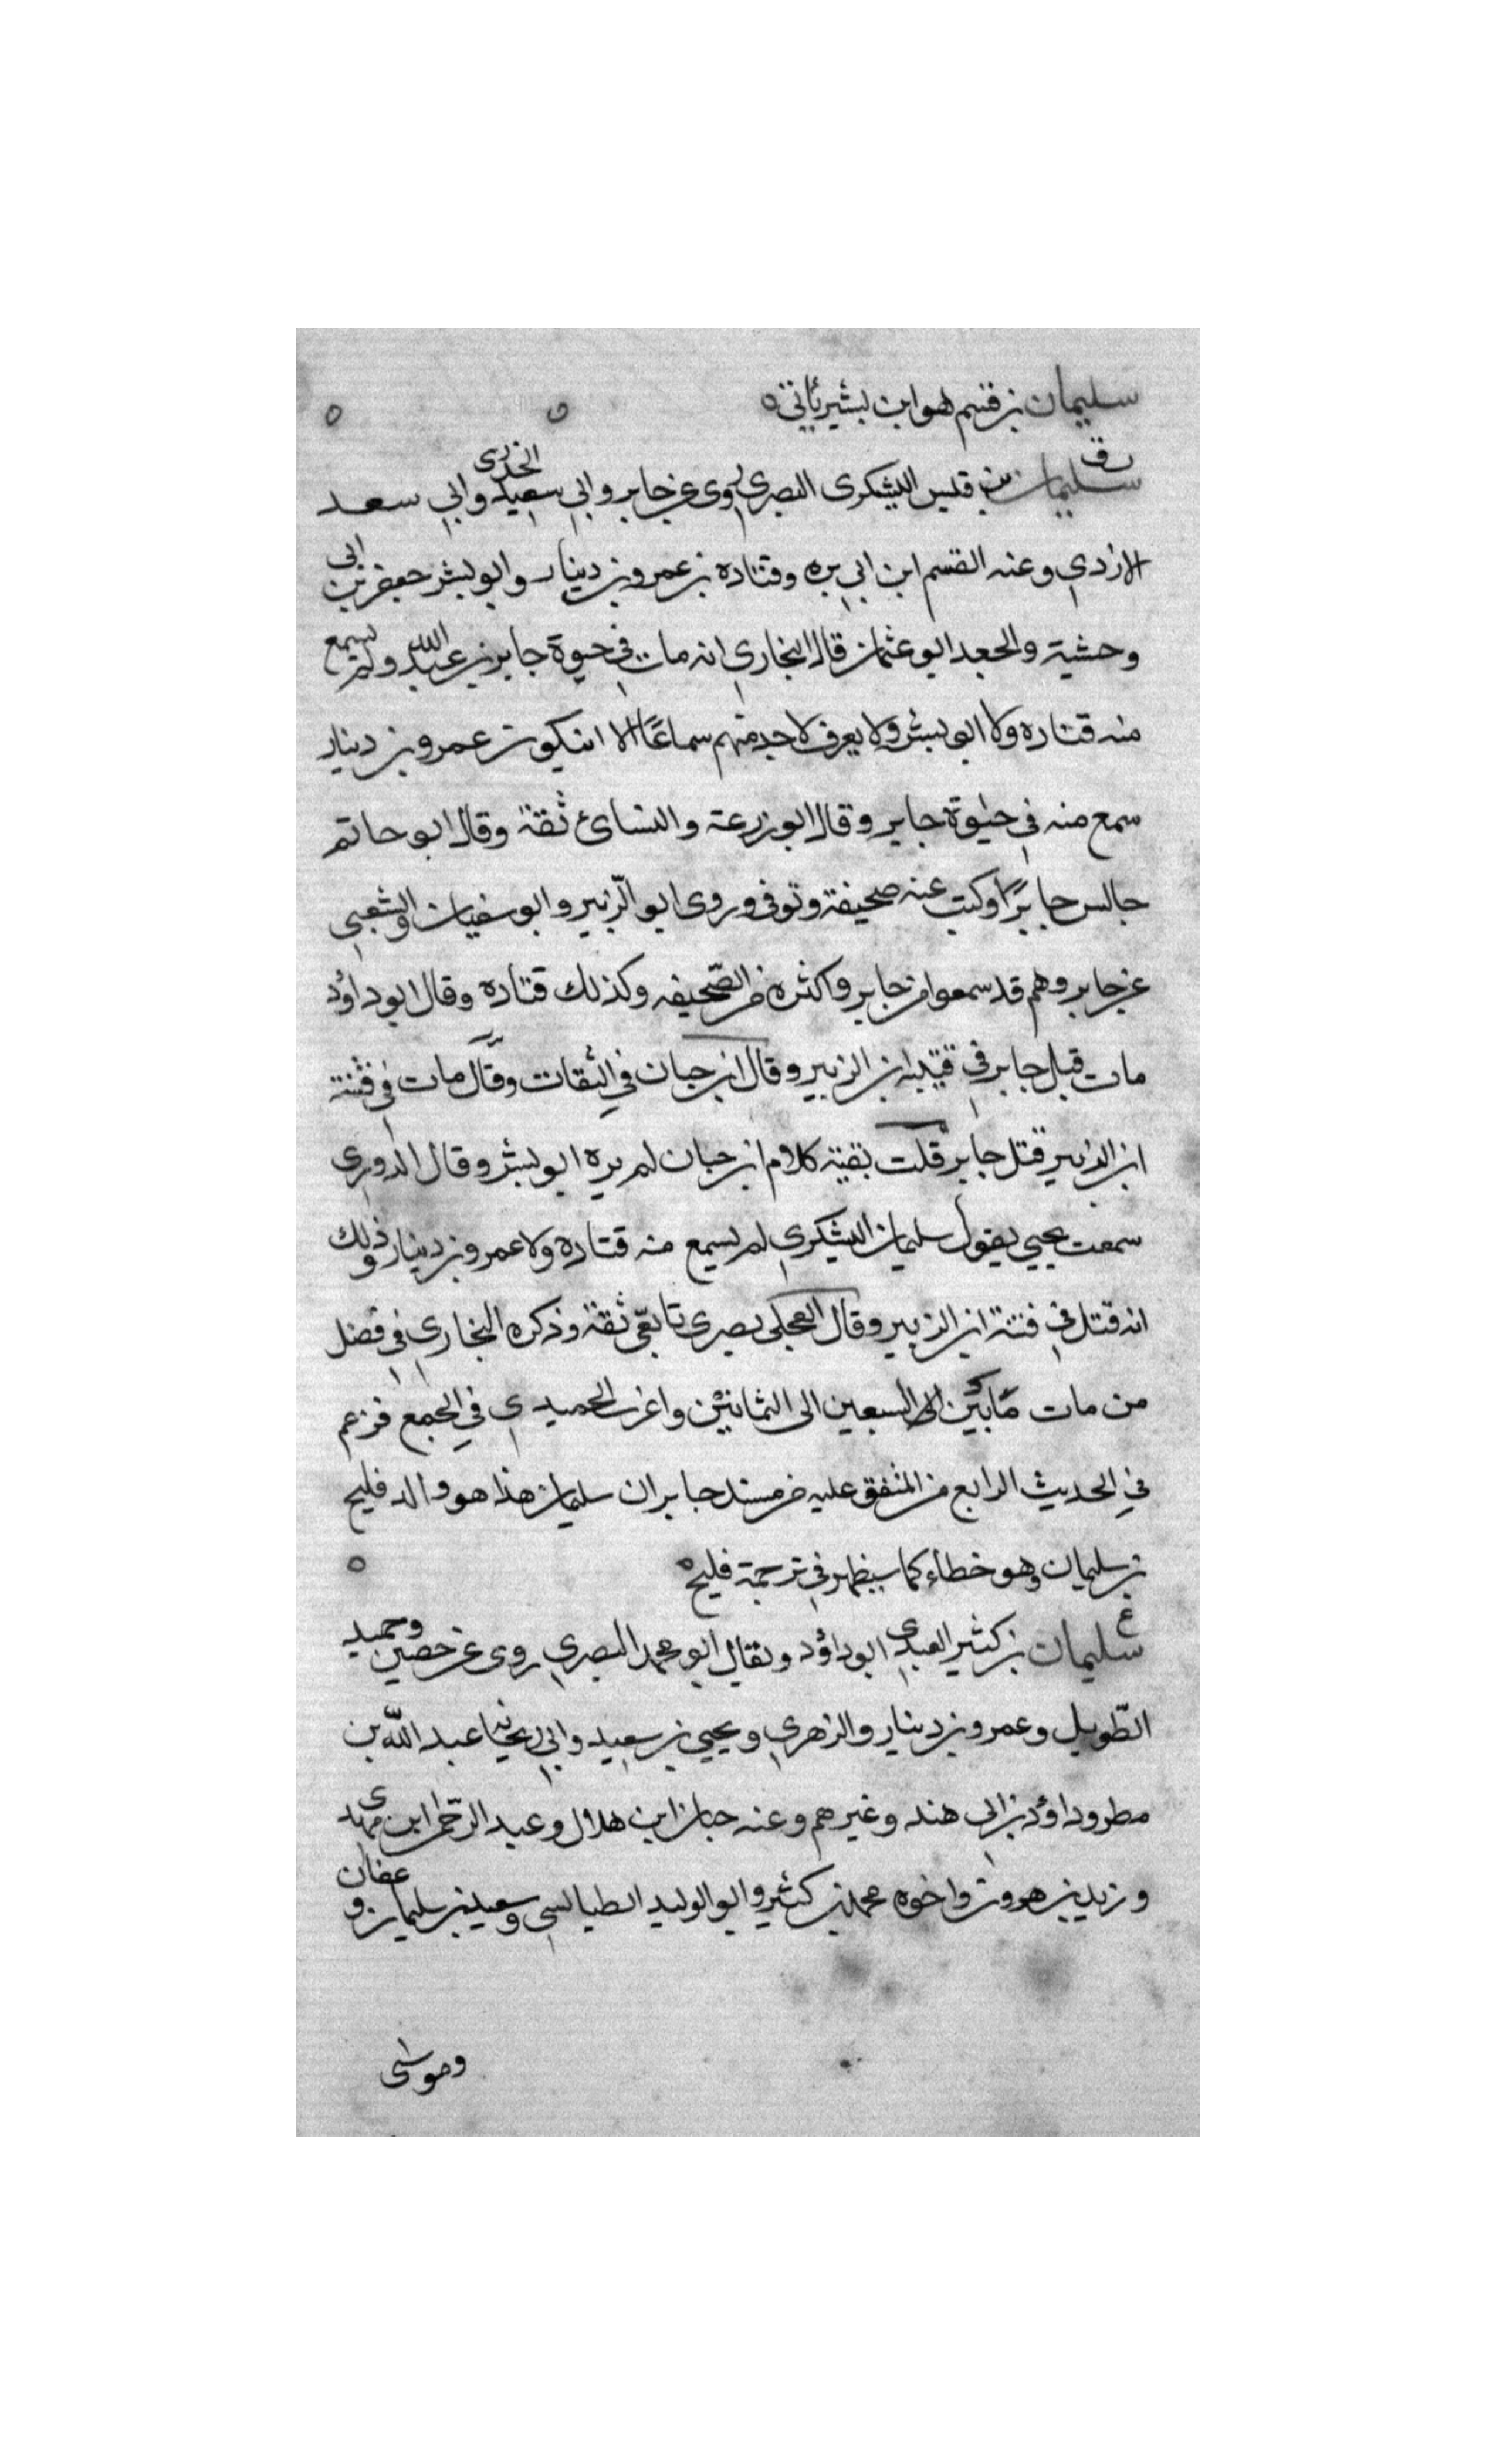 سليمان بن قسيم هو ابن بشير ياتي ه
ت ق
سليمان بن قيس اليشكرى البصري روى عن جابر وابي سعيد الخدرى وابي سعد
الازدي وعنه القسم ابن ابي بره وقتاده بن عمرو بن دينار وابو بشر جعفر بن ابى
وحشية والجعد ابو عثمان قال البخاري انه مات في حيوة جابر بن عبد الله ولم يسمع
منه قتاده ولا ابو بشر ولا يعرف لاحد منهم سماعًا الا ان يكون عمرو بن دينار
سمع منه في حيوة جابر وقال ابو زرعة والنسائ ثقة وقال ابو حاتم
جالس جابرًا وكتب عنه صحيفة وتوفى وروى ابو الزبير وابو سفيان والشعبي
عن جابر وهم قد سمعوا من جابر واكثره من الصحيفه وكذلك قتاده وقال ابو داؤد
مات قبل جابر في فتنة ابن الزبير وقال ابن حبان في الثقات وقال مات في فتنة
ابن الزبير قتل جابر قلت بقية كلام ابن حبان لم يره ابو بشر وقال الدوري
سمعت يحيي يقول سليمان اليشكري لم يسمع منه قتاده ولا عمرو بن دينار وذلك
انه قتل في فتنة ابن الزبير وقال العجلى بصرى تابعي ثقة وذكره البخاري في فصل
من مات ما بين السبعين الى الثمانين واغرب الحميدي في الجمع فزعم
في الحديث الرابع من المتفق عليه من مسند جابر ان سليمان هذا هو والد فليح
بن سليمان وهو خطاء كما سيظهر في ترجمة فليح ه
ع
سليمان بن كثير العبدي ابو داؤد ويقال ابو محمد البصري روى عن حصين وحميد
الطّويل وعمرو بن دينار والزهري ويحيي بن سعيد وابي ريحانه عبد الله بن
مطر وداؤد بن ابي هند وغيرهم وعنه حبان ابن هلال وعبد الرحمن ابن مهدى
ويزيد بن هرون واخوه محمد بن كثير وابو الوليد الطيالسي وسعيد بن سليمان و عفان
وموسى